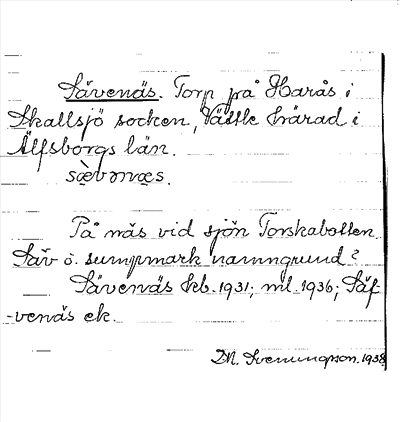 Sävenäs. Torp på Harås i
Skallsjö socken, Vättle härad i
Älfsborgs län.
sæ̀vənæs.
På näs vid sjön Torskabotten.
Säv o. sumpmark namngrund?
Sävenäs kb. 1931; ml. 1936; Säf-
-venäs ek.
M. Svenungsson. 1938